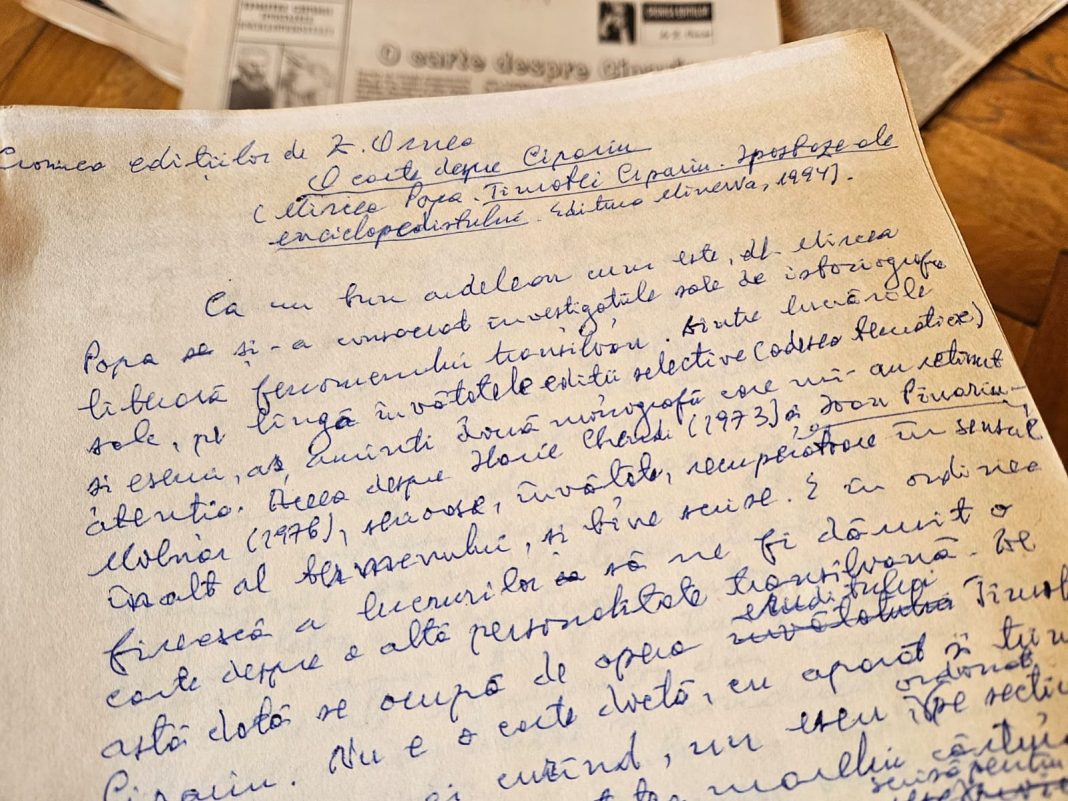 O carte despre
Cronica edițiilor de Z. Ornea
O carte despre Cipariu
(Mircea Popa. Timotei Cipariu. Ipostaze ale
enciclopedistului. Editura Minerva, 1994).
Ca un bun ardelean cum este, dl. Mircea
Popa se și-a consacrat investigațiile sale de istoriografie
literară fenomenului transilvan. Dintre lucrările
sale, pe lîngă învățatele ediții selective (adesea tematice)
și eseuri, aș aminti două monografii care mi-au reținut
atenția. Aceea despre Ilarie Chendi (1973) și Ioan Piuariu-
Molnar (1976), serioase, învățate, recuperatoare în sensul
înalt al termenului, și bine scrise. E în ordinea
firească a lucrurilor ca să ne fi dăruit o
carte despre o altă personalitate transilvană. De
astă dată se ocupă de opera învățatului eruditului Timotei
Cipariu. Nu e o carte doctă, cu aparat și
ci curînd, un eseu ordonat pe secțiuni
marelui cărturar
scrisă pentru